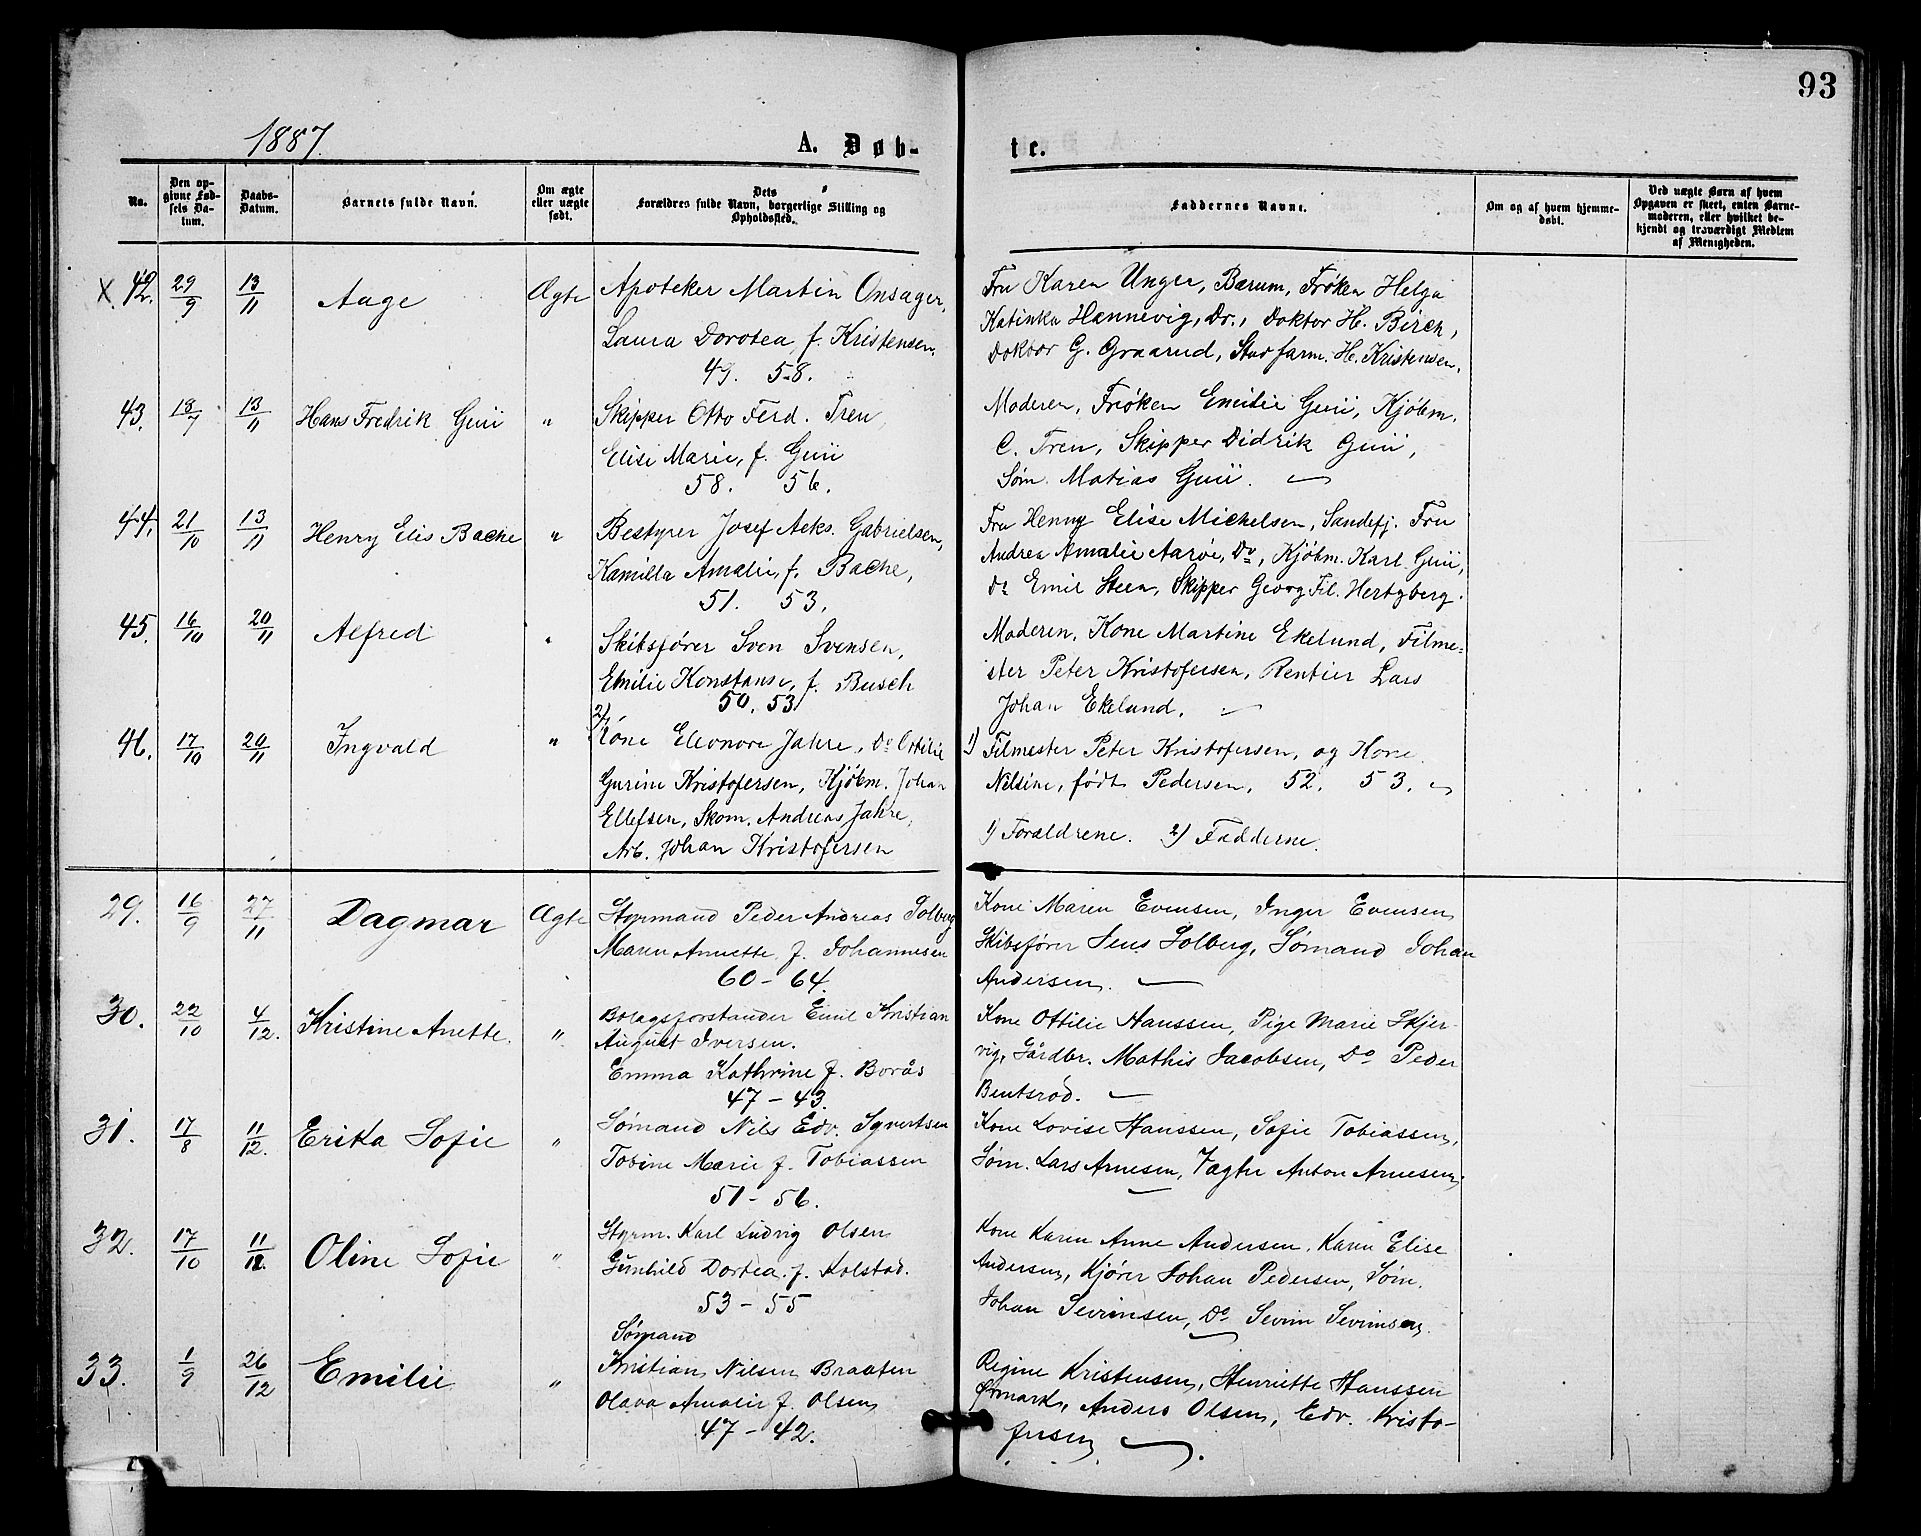 93
1887
A. Døb-
te.
No.
Den op-
givne Fød-
sels Da-
tum.
Daabs-
Datum.
Barnets fulde Navn.
Om ægte
eller uægte
født.
Dets
Forældres fulde Navn, borgerlige Stilling og
Opholdssted.
Faddernes Navne.
Om og af hvem hjemme-
døbt.
Ved uægte Børn af hvem
Opgaven er skeet, enten Barne-
moderen, eller hvilket be-
kjendt og troværdigt Medlem
af Menigheden.
X. 42. 29/9 13/11 Aage Ægte Apoteker Martin Onsager,
Laura Dorotea, f. Kristensen.
49. 58.
Fru Karen Unger, Bærum, Frøken Helga
Katinka Hannevig, Do., Doktor H. Birch,
Doktor G. Graarud, Stud farm. H. Kristensen.
43. 18/7 13/11 Hans Fredrik Grui " Skipper Otto Ferd. Tren,
Elise Marie, f. Grui
58. 56.
Moderen, Frøken Emilie Grui, Kjøbm.
C. Tren, Skipper Didrik Grui,
Søm. Matias Grui.
44. 21/10 13/11 Henry Elis Bache " Bestyrer Josef Aeks. Gabrielsen,
Kamilla Amalie, f. Bache,
51. 53.
Fru Henny Elise Michelsen, Sandefj. Fru
Andrea Amalie Aarøe, Do, Kjøbm. Karl Grui,
Do Emil Steen, Skipper Georg Fil. Hertzberg.
45. 16/10 20/11 Alfred " Skibsfører Sven Svensen,
Emilie Konstanse, f. Busch
50. 53.
Moderen, Kone Martine Ekelund, Filme-
ster Peter Kristofersen, Rentier Lars
Johan Ekelund.
46. 17/10 20/11 Ingvald " 2) Kone Eleonore Jahre, Do Otilie
Gurine Kristofersen, Kjøbm. Johan
Ellefsen, Skom. Andreas Jahre,
Arb. Johan Kristofersen
1) Filmester Peter Kristofersen, og Kone
Nilsine, født Pedersen. 52. 53.
1) Forældrene. 2) Fadderne.
29. 16/9 27/11 Dagmar Ægte Styrmand Peder Andreas Solberg
Maren Annette f. Johannesen
60 - 64.
Kone Maren Evensen, Inger Evensen
Skibsfører Jens Solberg, Sømand Johan
Andersen.
30. 22/10 4/12. Kristine Anette. " Bolagsforstander Emil Kristian
August Iversen.
Emma Kathrine f. Borås
47 - 43.
Kone Ottilie Hanssen, Pige Marie Skjer-
vig, Gårdbr. Mathis Jacobsen, Do Peder
Bentsrød.
31. 17/8 11/12. Erika Sofie " Sømand Nils Edv. Syvertsen
Tobine Marie f. Tobiassen
51 - 56.
Kone Lovise Hanssen, Sofie Tobiassen,
Søm. Lars Arnesen, Vægter Anton Arnesen.
32. 17/10 11/12. Oline Sofie " Styrm. Karl Ludvig Olsen
Gunhild Dortea f. Kolstad.
53 - 55
Kone Karen Anne Andersen, Karen Elise
Andersen, Kjører Johan Pedersen, Søm.
Johan Sevrinsen, Do Sevrin Sevrinsen.
33. 1/9 26/12 Emilie " Sømand
Kristian Nilsen Braaten
Olava Amalie f. Olsen
47 - 42.
Regine Kristensen, Henriette Hanssen
Ormark, Anders Olsen, Edv. Kristo-
fersen